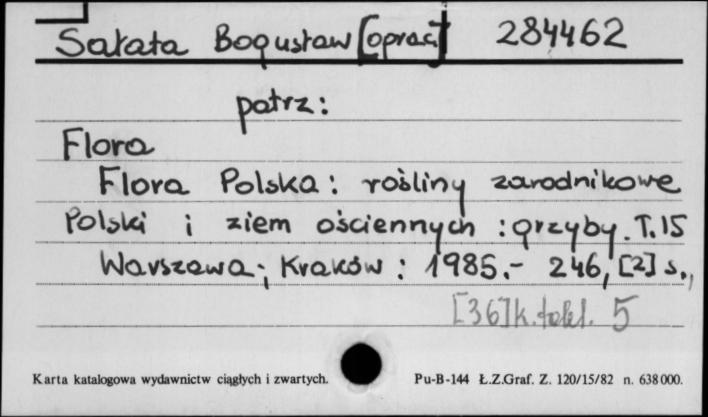 Sałata Bogusław [oprac.] 284462
patrz:
Flora
Flora Polska: rośliny zarodnikowe
Polski i ziem ościennych : grzyby. T.15
Warszawa ; Kraków : 1985.- 246, [2] s.,
[36] k. tabl. 5
Karta katalogowa wydawnictw ciągłych i zwartych. Pu-B-144 Ł.Z.Graf. Z. 120/15/82 n. 638000.